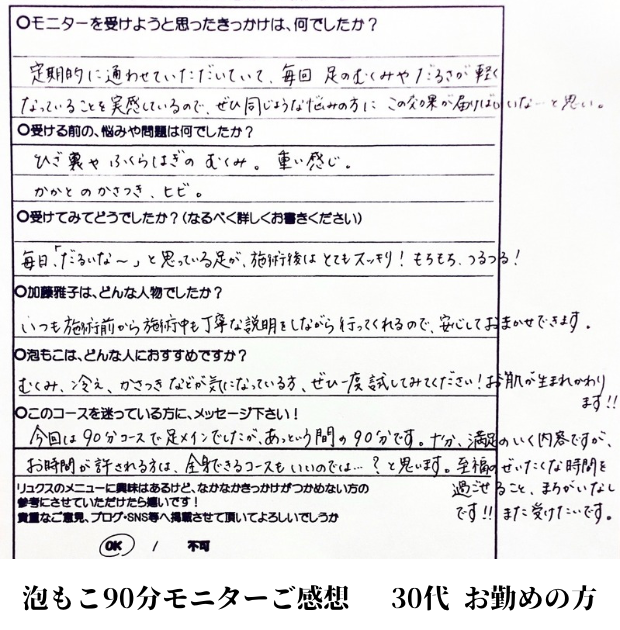 ○モニターを受けようと思ったきっかけは、何でしたか？
定期的に通わせていただいていて、毎回 足のむくみや だるさが 軽く
なっていることを実感しているので、ぜひ同じような悩みの方に この効果が届けばいいな〜と思い。
○受ける前の、悩みや問題は何でしたか？
ひざ裏や ふくらはぎの むくみ。 重い感じ。
かかとのかさつき、ヒビ。
○受けてみてどうでしたか？（なるべく詳しくお書きください）
毎日、「だるいな〜」と思っている足が、施術後は とてもスッキリ！もちもち、つるつる！
○加藤雅子は、どんな人物でしたか？
いつも施術前から施術中も丁寧な説明をしながら行ってくれるので、安心しておまかせできます。
○泡もこは、どんな人におすすめですか？
むくみ、冷え、かさつきなどが気になっている方、ぜひ一度試してみてください！お肌が生まれかわり
ます！！
○このコースを迷っている方に、メッセージ下さい！
今回は90分コースで足メインでしたが、あっという間の90分です。十分、満足のいく内容ですが、
お時間が許される方は、全身できるコースもいいのでは…？と思います。至福のぜいたくな時間を
過ごせること、まちがいなし
です！！また受けたいです。
リュクスのメニューに興味はあるけど、なかなかきっかけがつかめない方の
参考にさせていただけたら嬉いです！
貴重なご意見、ブログ・SNS等へ掲載させて頂いてよろしいでしょうか
OK / 不可
泡もこ90分モニターご感想 30代 お勤めの方